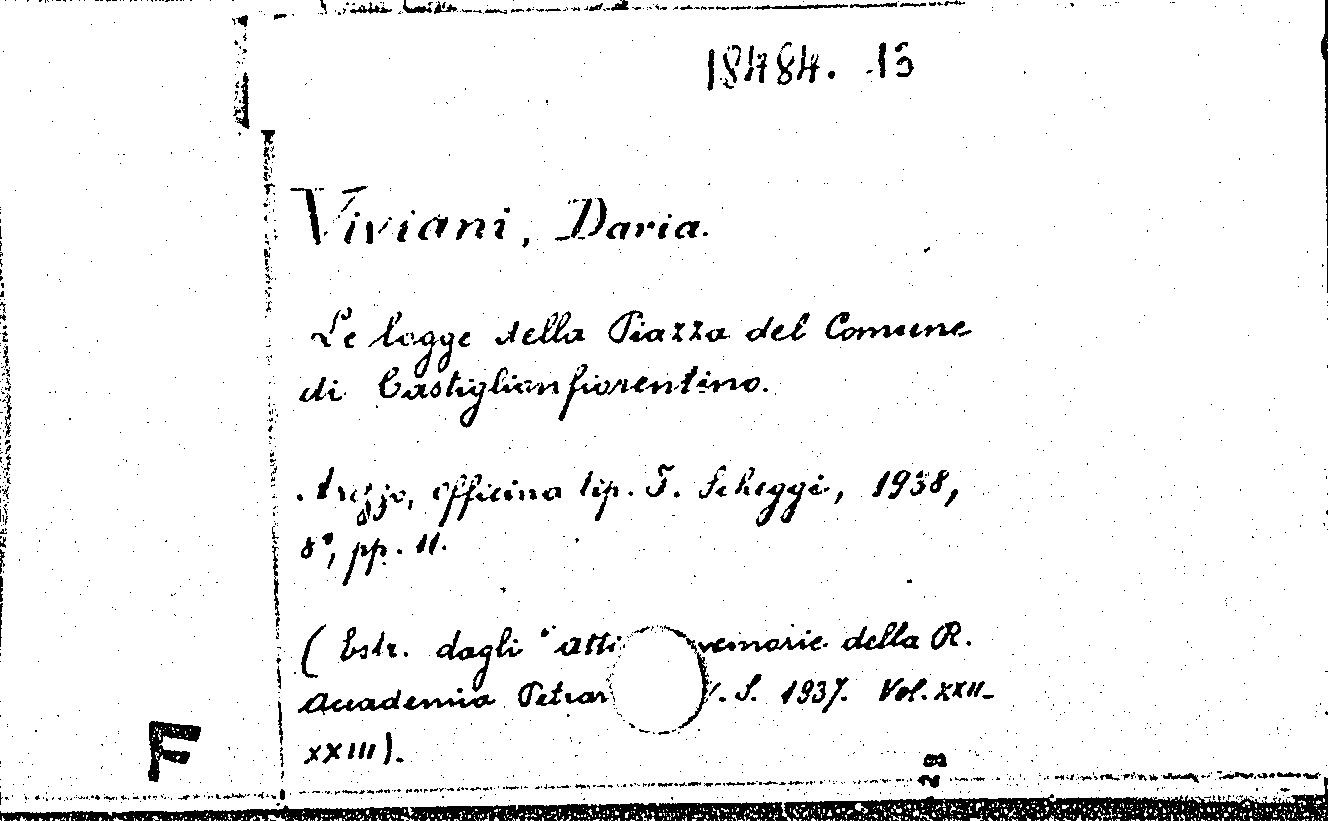 18484. 15
Viviani, Daria.
Le logge della Piazza del Comune
di Castiglionfiorentino.
Arezzo, officina tip. F. Scheggi, 1938,
8°, pp. 11.
( Estr. dagli "Atti memorie della R.
Accademia Petrar .S. 1937. Vol. XXII-
XXIII).
F